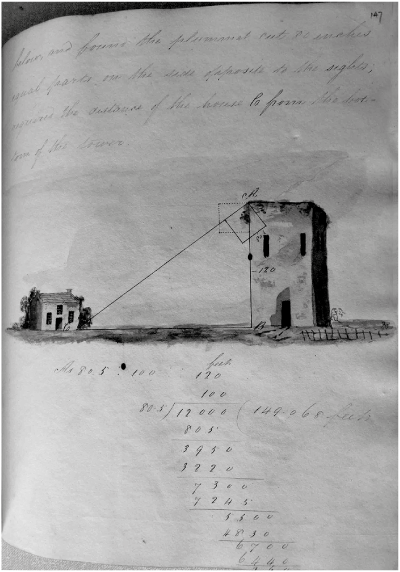 147
plumb and found the plummet cut 80 makes
equal parts on the side opposite to the sights;
required the distance of the house C from the bot-
tom of the tower.
A
120
B
C
As 80.5 : 100
feet
120
100
80.5 ) 12000 ( 149.068 feet
805
3950
3220
7300
7245
5500
4830
6700
6440